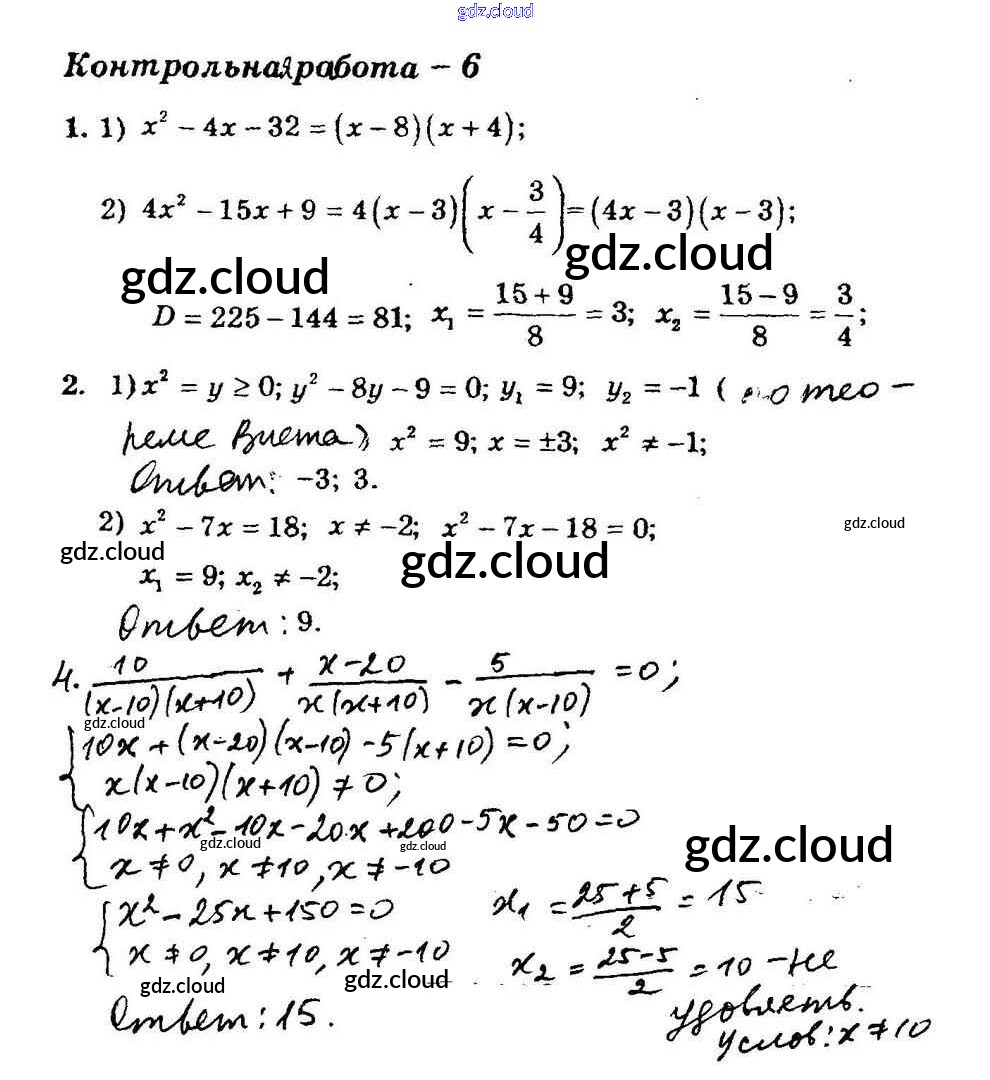 gdz.cloud
Контрольная работа – 6
1. 1) x² – 4x – 32 = (x – 8)(x + 4);
2) 4x² – 15x + 9 = 4(x – 3)(x – 3/4) = (4x – 3)(x – 3);
gdz.cloud
gdz.cloud
D = 225 – 144 = 81; x₁ = (15 + 9)/8 = 3; x₂ = (15 – 9)/8 = 3/4;
2. 1) x² = y ≥ 0; y² – 8y – 9 = 0; y₁ = 9; y₂ = –1 (по тео –
реме Виета) x² = 9; x = ±3; x² ≠ –1;
Ответ: –3; 3.
2) x² – 7x = 18; x ≠ –2; x² – 7x – 18 = 0;
gdz.cloud
gdz.cloud
gdz.cloud
x₁ = 9; x₂ ≠ –2;
Ответ: 9.
4. 10/((x-10)(x+10)) + (x-20)/(x(x+10)) - 5/(x(x-10)) = 0;
gdz.cloud
{10x + (x-20)(x-10) - 5(x+10) = 0;
x(x-10)(x+10) ≠ 0;
{10x + x² - 10x - 20x + 200 - 5x - 50 = 0
gdz.cloud
gdz.cloud
gdz.cloud
x ≠ 0, x ≠ 10, x ≠ -10
{x² - 25x + 150 = 0 x₁ = (25+5)/2 = 15
x ≠ 0, x ≠ 10, x ≠ -10 x₂ = (25-5)/2 = 10 - не
gdz.cloud
gdz.cloud
удовлетв.
Ответ: 15.
услов: x ≠ 10